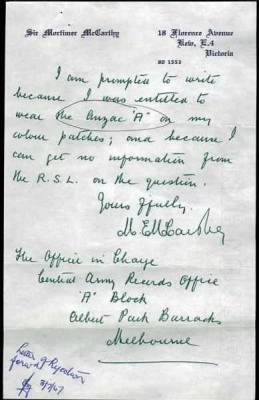 Sir Mortimer McCarthy
18 Florence Avenue
Kew, E.4
Victoria
80 1353
I am prompted to write
because I was entitled to
wear the Anzac "A" on my
colour patches; and because I
can get no information from
the R.S.L. on the question.
Yours ffully.
The Office in Charge
Central Army Records Office
'A' Block
Albert Park Barracks
Melbourne
Letter of Rejection
forwd